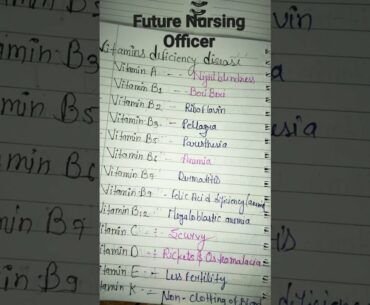 Future Nursing
Officer
Vitamins deficiency diseases
Vitamin A - - Night blindness
Vitamin B1 - Beri Beri
Vitamin B2 - Riboflavin
Vitamin B3 - Pellagra
Vitamin B5 - Paresthesia
Vitamin B6 - Anemia
Vitamin B7 - Dermatitis
Vitamin B9 - Folic Acid deficiency
Vitamin B12 - Megaloblastic anemia
Vitamin C - Scurvy
Vitamin D - Rickets & Osteomalacia
Vitamin E - Less Fertility
Vitamin K - Non-Clotting of
min B3
min B5
min B6
min B7
in B9
vin
esia